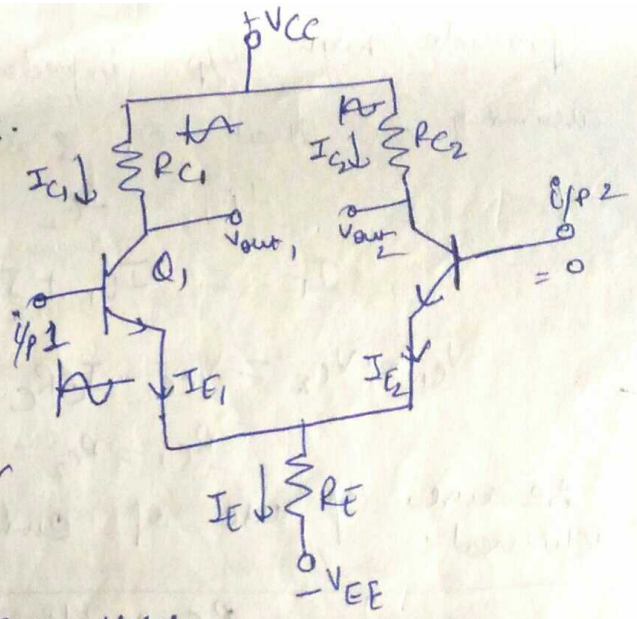 +VCC
IC1
RC1
IC2
RC2
Vout1
Vout2
i/p 2
= 0
Q1
i/p 1
IE1
IE2
IE
RE
-VEE